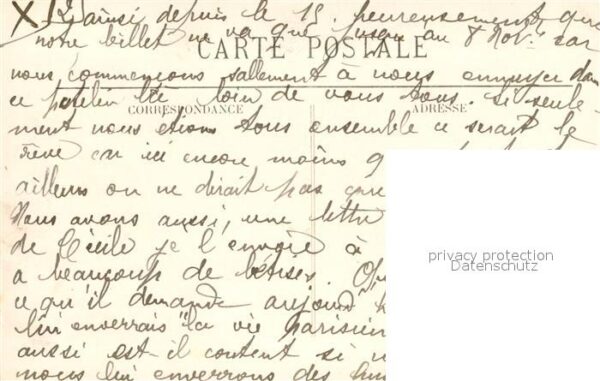 ainsi depuis le 15. heureusement que
notre billet ne va que jusqu'au 8 Nov. car
CARTE POSTALE
nous commençons salement à nous ennuyer dans
ce patelin loin de vous tous. si seule-
CORRESPONDANCE ADRESSE
ment nous étions tous ensemble ce serait le
rêve car ici encore moins
ailleurs on ne dirait pas que
Nous avons aussi, une lettre
de Cécile je l'envoie à
a beaucoup de bêtises.
ce qu'il demande aujourd'h
lui enverrais "la vie parisien
aussi est-il content si n
nous lui enverrons des
privacy protection
Datenschutz